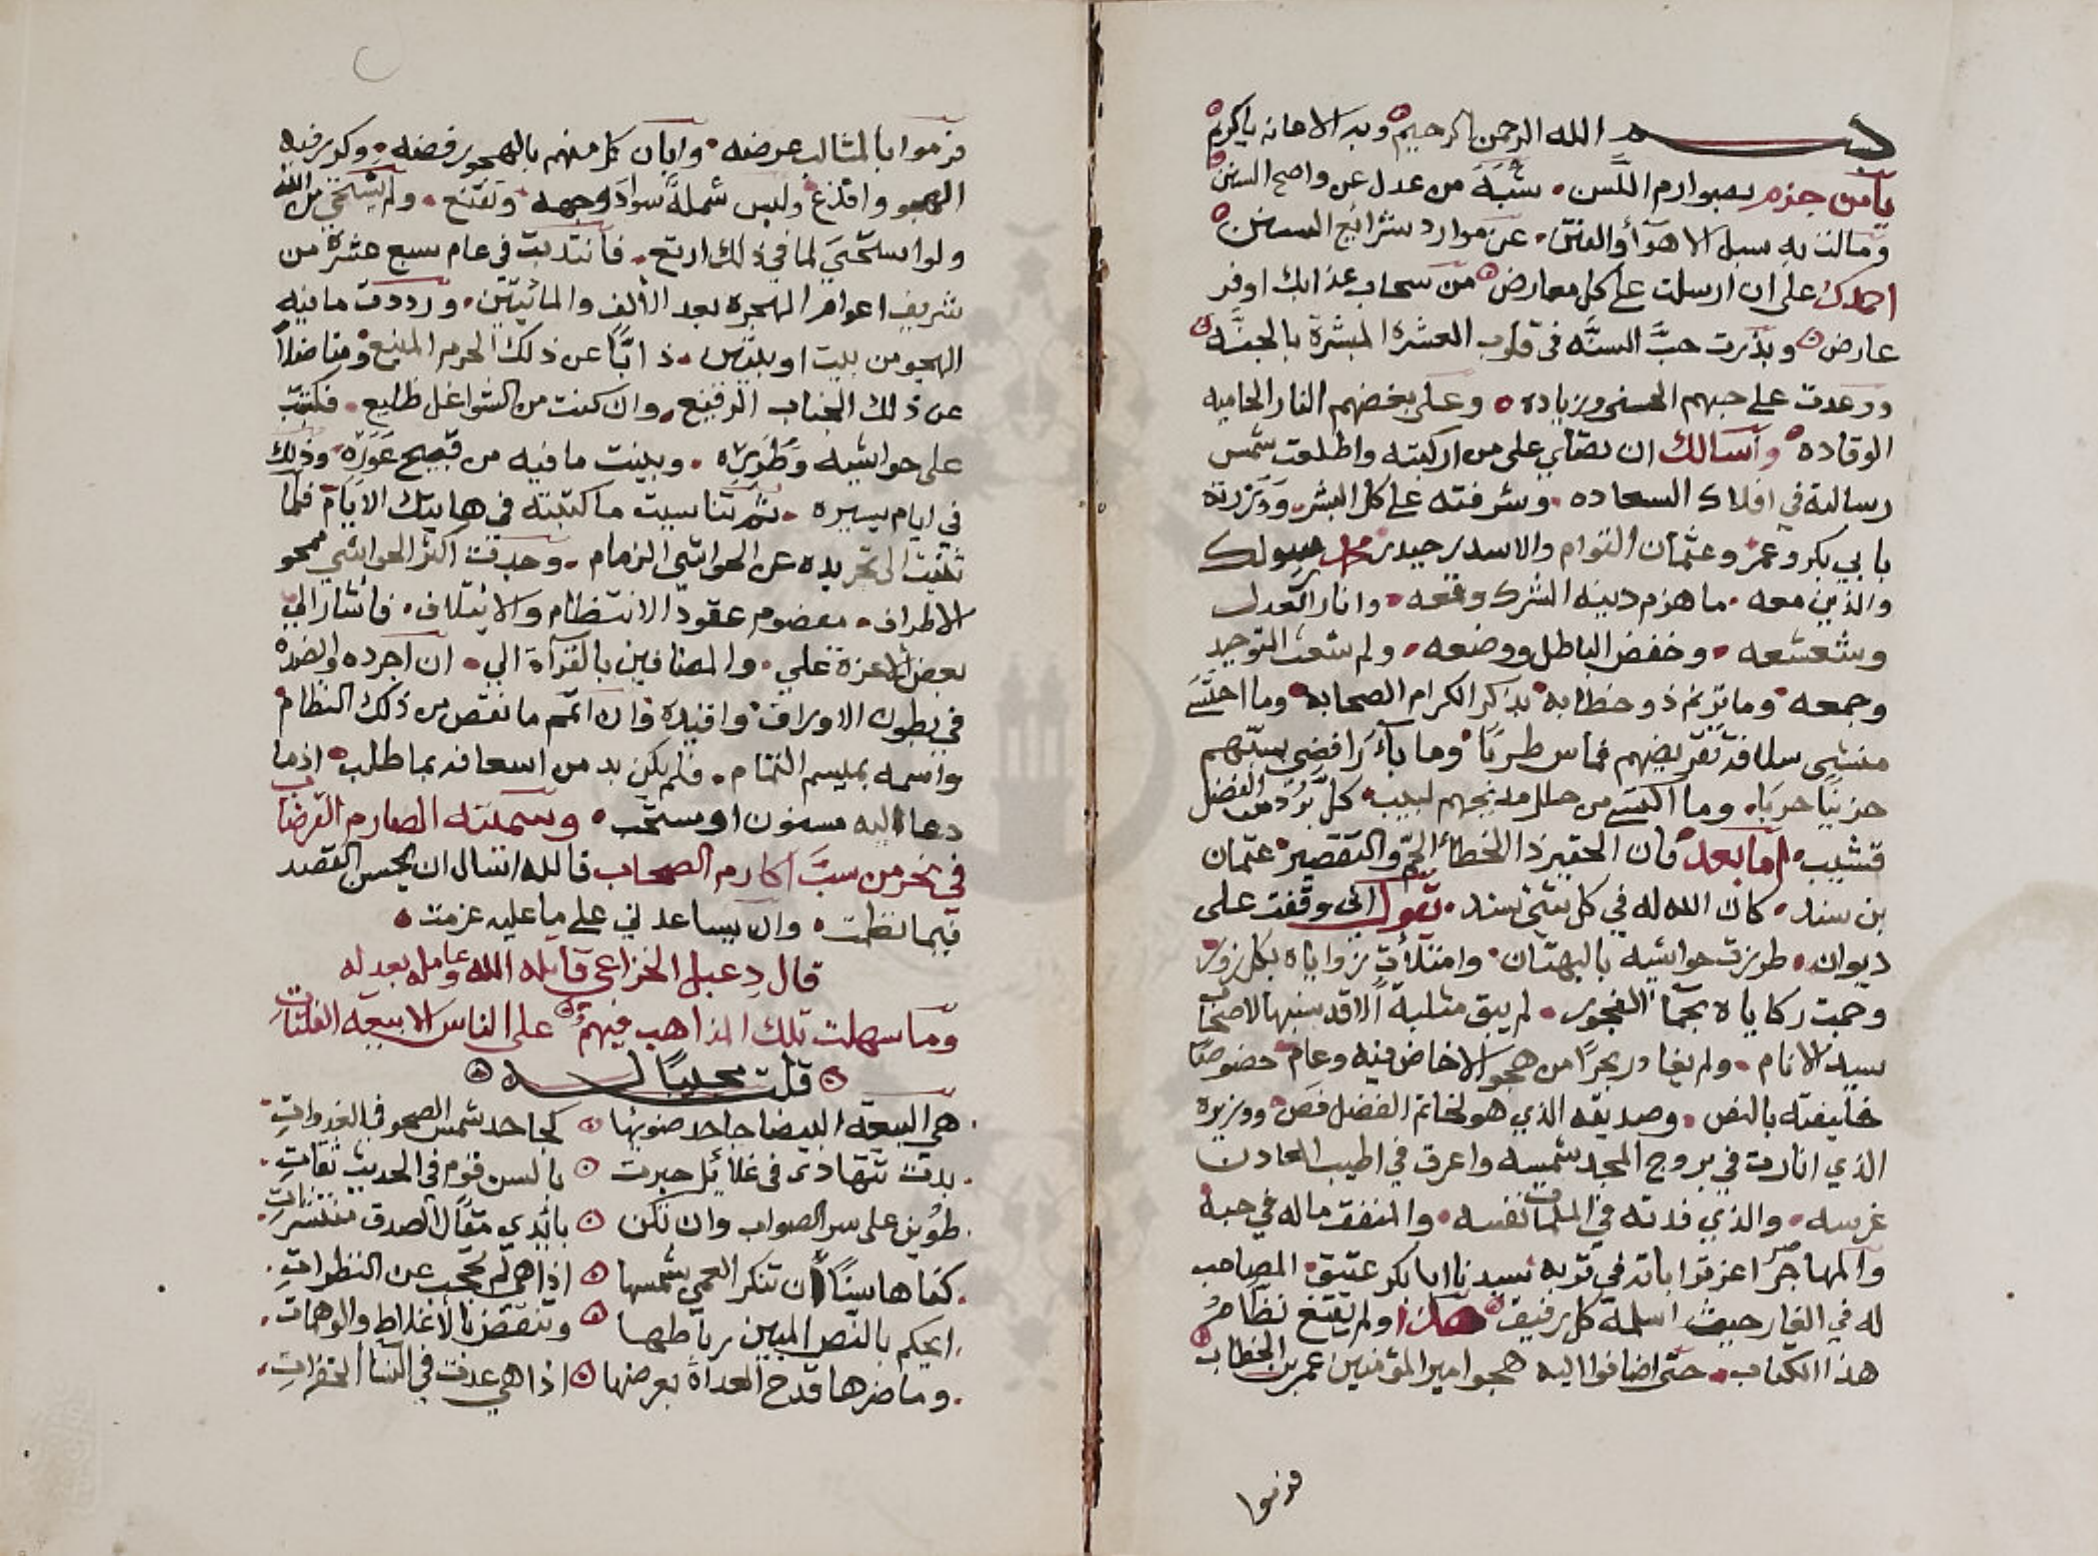 بسم الله الرحمن الرحيم وبه الاعانه ياكريم
يامن جزم بصوارم اللسن شبه من عدل عن واضح السنن
ومالت به سبل الاهوآ والفتن عن موارد شرائع السنن
احمدك على ان ارسلت على كل معارض من سحاب عذابك اوفر
عارض وبذرت حب السنه في قلوب العشرة المبشرة بالجنه
ووعدت على حبهم الحسنى وزياده وعلى بغضهم النار الحاميه
الوقاده وأسالك ان تصلي على من اركبته واطلعت شمس
رسالته في افلاك السعاده وشرفته على كل البشر ووزرته
بابي بكر وعمر وعثمان التوام والاسد حيدر محمد رسولك
والذين معه ما هزم دينه الشرك وقمعه وانار العدل
وشعشعه وخفض الباطل ووضعه ولم شعث التوحيد
وجمعه وما ترنم ذو خطابه بذكر الكرام الصحابه وما احتسى
منتشي سلافة تقريضهم فماس طربًا وما بآء رافضي بسبهم
حزينًا حربًا وما اكتسى من حلل مديحهم لبيب كل برد من الفضل
قشيب اما بعد فان الحقير ذا الخطأ الجم والتقصير عثمان
بن سند كان الله له في كل شئ سند يقول اني وقفت على
ديوان طرزت حواشيه بالبهتان وامتلأت زواياه بكل زور
وحمت ركاياه بجمأ الفجور لم يبق مثلبة الا قد نسبها لاصحاب
سيد الانام ولم يغادر بحرًا من هجو الا خاض فيه وعام خصوصًا
خليفته بالنص وصديقه الذي هو لخاتم الفضل فص ووزيره
الذي انارت في بروج المجد شميسه واعرق في اطيب المعادن
غرسه والذي فدته في الملمات نفسه والمنفق ماله في حبه
والمهاجر اعز ترابا ته في تربه سيدنا ابا بكر عتيق المصاحب
له في الغار حيث اسلمه كل رفيق هذا ولم يقنع نظام
هذا الكتاب حتى اضافوا اليه هجو امير المؤمنين عمر بن الخطاب
فرموا
فرموا بالمثالب عرضه وابان كل منهم بالهجو رفضه وكرر فيه
الهجو واقذع ولبس شملة سواد وجهه وتقنع ولم يستخفي من الله
ولو استحيى لما في ذلك ارتع فانتدبت في عام سبع عشرة من
شريف اعوام الهجره بعد الألف والمائيتين ورددت ما فيه
الهجو من بيت او بيتين ذابًّا عن ذلك الحرم المنيع ومناضلاً
عن ذلك الجناب الرفيع وان كنت من الشواغل ظليع فكتبت
على حواشيه وطرره وبينت ما فيه من قبيح عوره وذلك
في ايام يسيره ثم تناسيت ما كتبته في هاتيك الايام فلما
ثنيت الى تجريده عن الحواشي الزمام وجدت اكثر الحواشي ممحو
الاطراف مفصوم عقود الانتظام والايتلاف فأشار الي
بعض الأعزة علي والمضافين بالقرآة الي ان اجرده وانضده
في بطون الاوراق واقيده وان اتمم ما نقص من ذلك النظام
واسمه بميسم التمام فلم يكن بد من اسعافه بما طلب اذ ما
دعا اليه مسنون او مستحب وسميته الصارم القرضاب
في نحر من سب أكارم الصحاب فالله اسال ان يحسن القصد
فيما نظمت وان يساعدني على ما عليه عزمت
قال دعبل الخزاعي قابله الله وعامله بعدله
وما سهلت تلك المذاهب فيهم على الناس الا بيعة الفلتات
قلت مجيبًا له
هي البيعة البيضا جاحد ضوئها كجاحد شمس الصحو في الغدوات
بدت تتهادى في غلائل حبرت بالسن قوم في الحديث ثقات
طوين على سر الصواب وان تكن بأيدي مقال الصدق منتشرات
كفاها سنًا ان تنكر العمي شمسها اذا هي لم تحجب عن النظرات
ايحكم بالنص المبين رباطها وتنقض بالأغلاط والوهمات
وما ضرها قدح العداة بعرضها اذا هي عدت في النسآ الخفرات